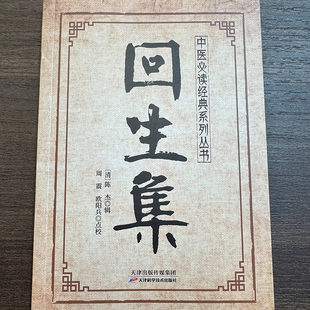 中医必读经典系列丛书
回生集
〔清〕陈 杰◎辑
周 震 欧阳兵◎点校
天津出版传媒集团
天津科学技术出版社